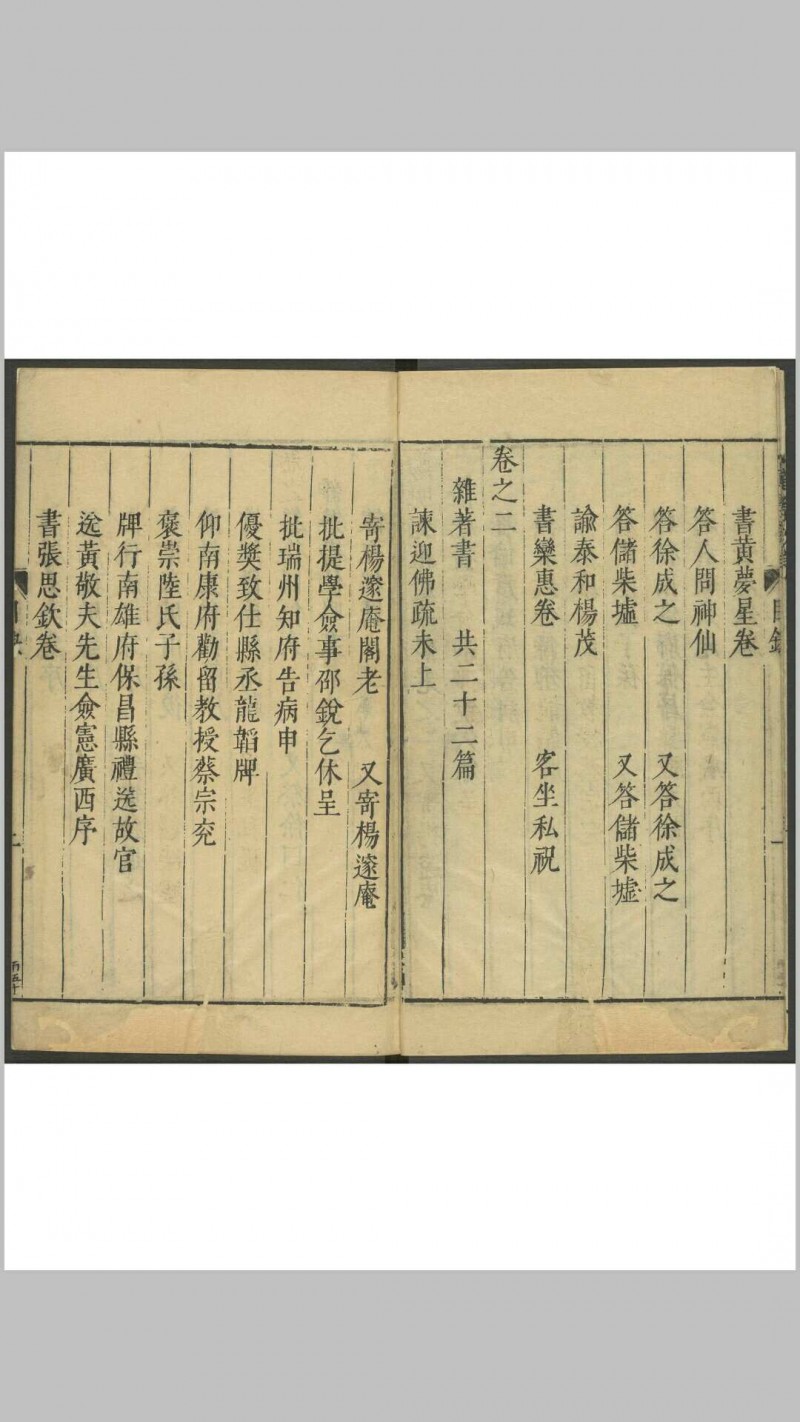 書黃夢星卷
答人問神仙
答徐成之 又答徐成之
答儲柴墟 又答儲柴墟
諭泰和楊茂
書欒惠卷 客坐私祝
卷之二
雜著書 共二十二篇
諫迎佛疏未上
寄楊邃庵閣老 又寄楊邃庵
批提學僉事邵銳乞休呈
批瑞州知府告病申
優奬致仕縣丞龍韜牌
仰南康府勸留教授蔡宗兗
褒崇陸氏子孫
牌行南雄府保昌縣禮送故官
送黃敬夫先生僉憲廣西序
書張思欽卷